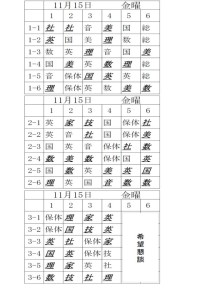 11月15日 金曜
1 2 3 4 5 6
1-1 社 社 音 美 国 総
1-2 英 国 美 理 数 総
1-3 数 英 理 音 国 美
1-4 国 美 英 数 理 国
1-5 音 保体 国 英 英 総
1-6 理 保体 英 美 数 数
11月15日 金曜
1 2 3 4 5 6
2-1 英 家 技 国 保体 社
2-2 英 音 社 国 美 保体
2-3 国 理 英 保体 家 英
2-4 数 美 数 保体 英 国
2-5 国 数 英 美 英 国
2-6 理 英 国 音 数 数
11月15日 金曜
1 2 3 4 5 6
3-1 保体 理 家 英
3-2 保体 英 社 保体
3-3 英 社 保体 家
3-4 美 国 保体 英
3-5 理 家 英 社
3-6 数 技 社 理
希望懇談